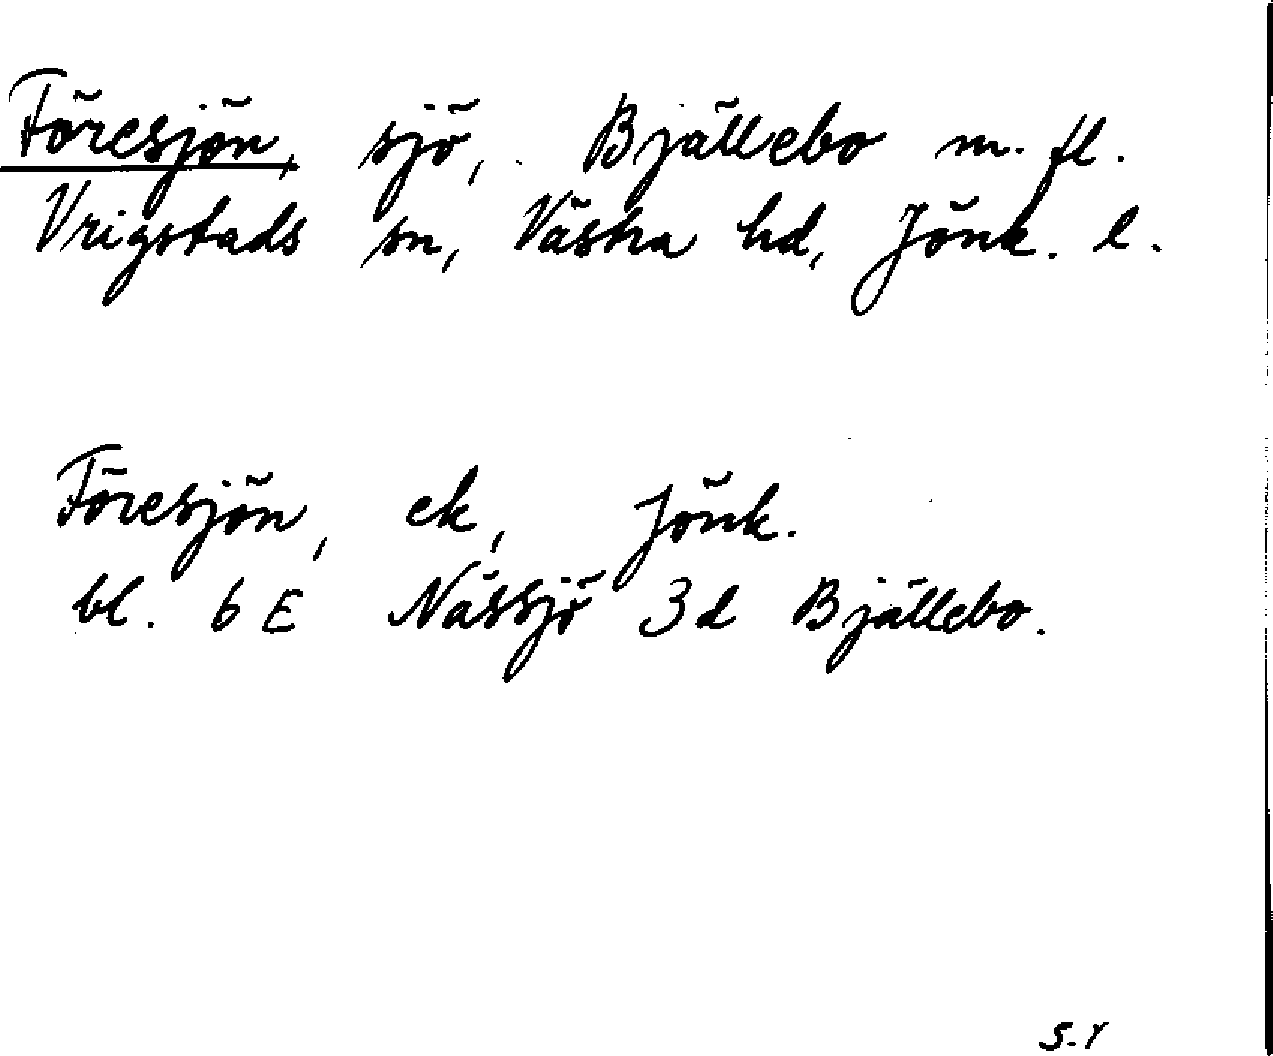 Föresjön, sjö, Bjällebo m. fl.
Vrigstads sn, Västra hd, Jönk. l.
Föresjön, ek, Jönk.
bl. 6 E Nässjö 3d Bjällebo.
S-Y